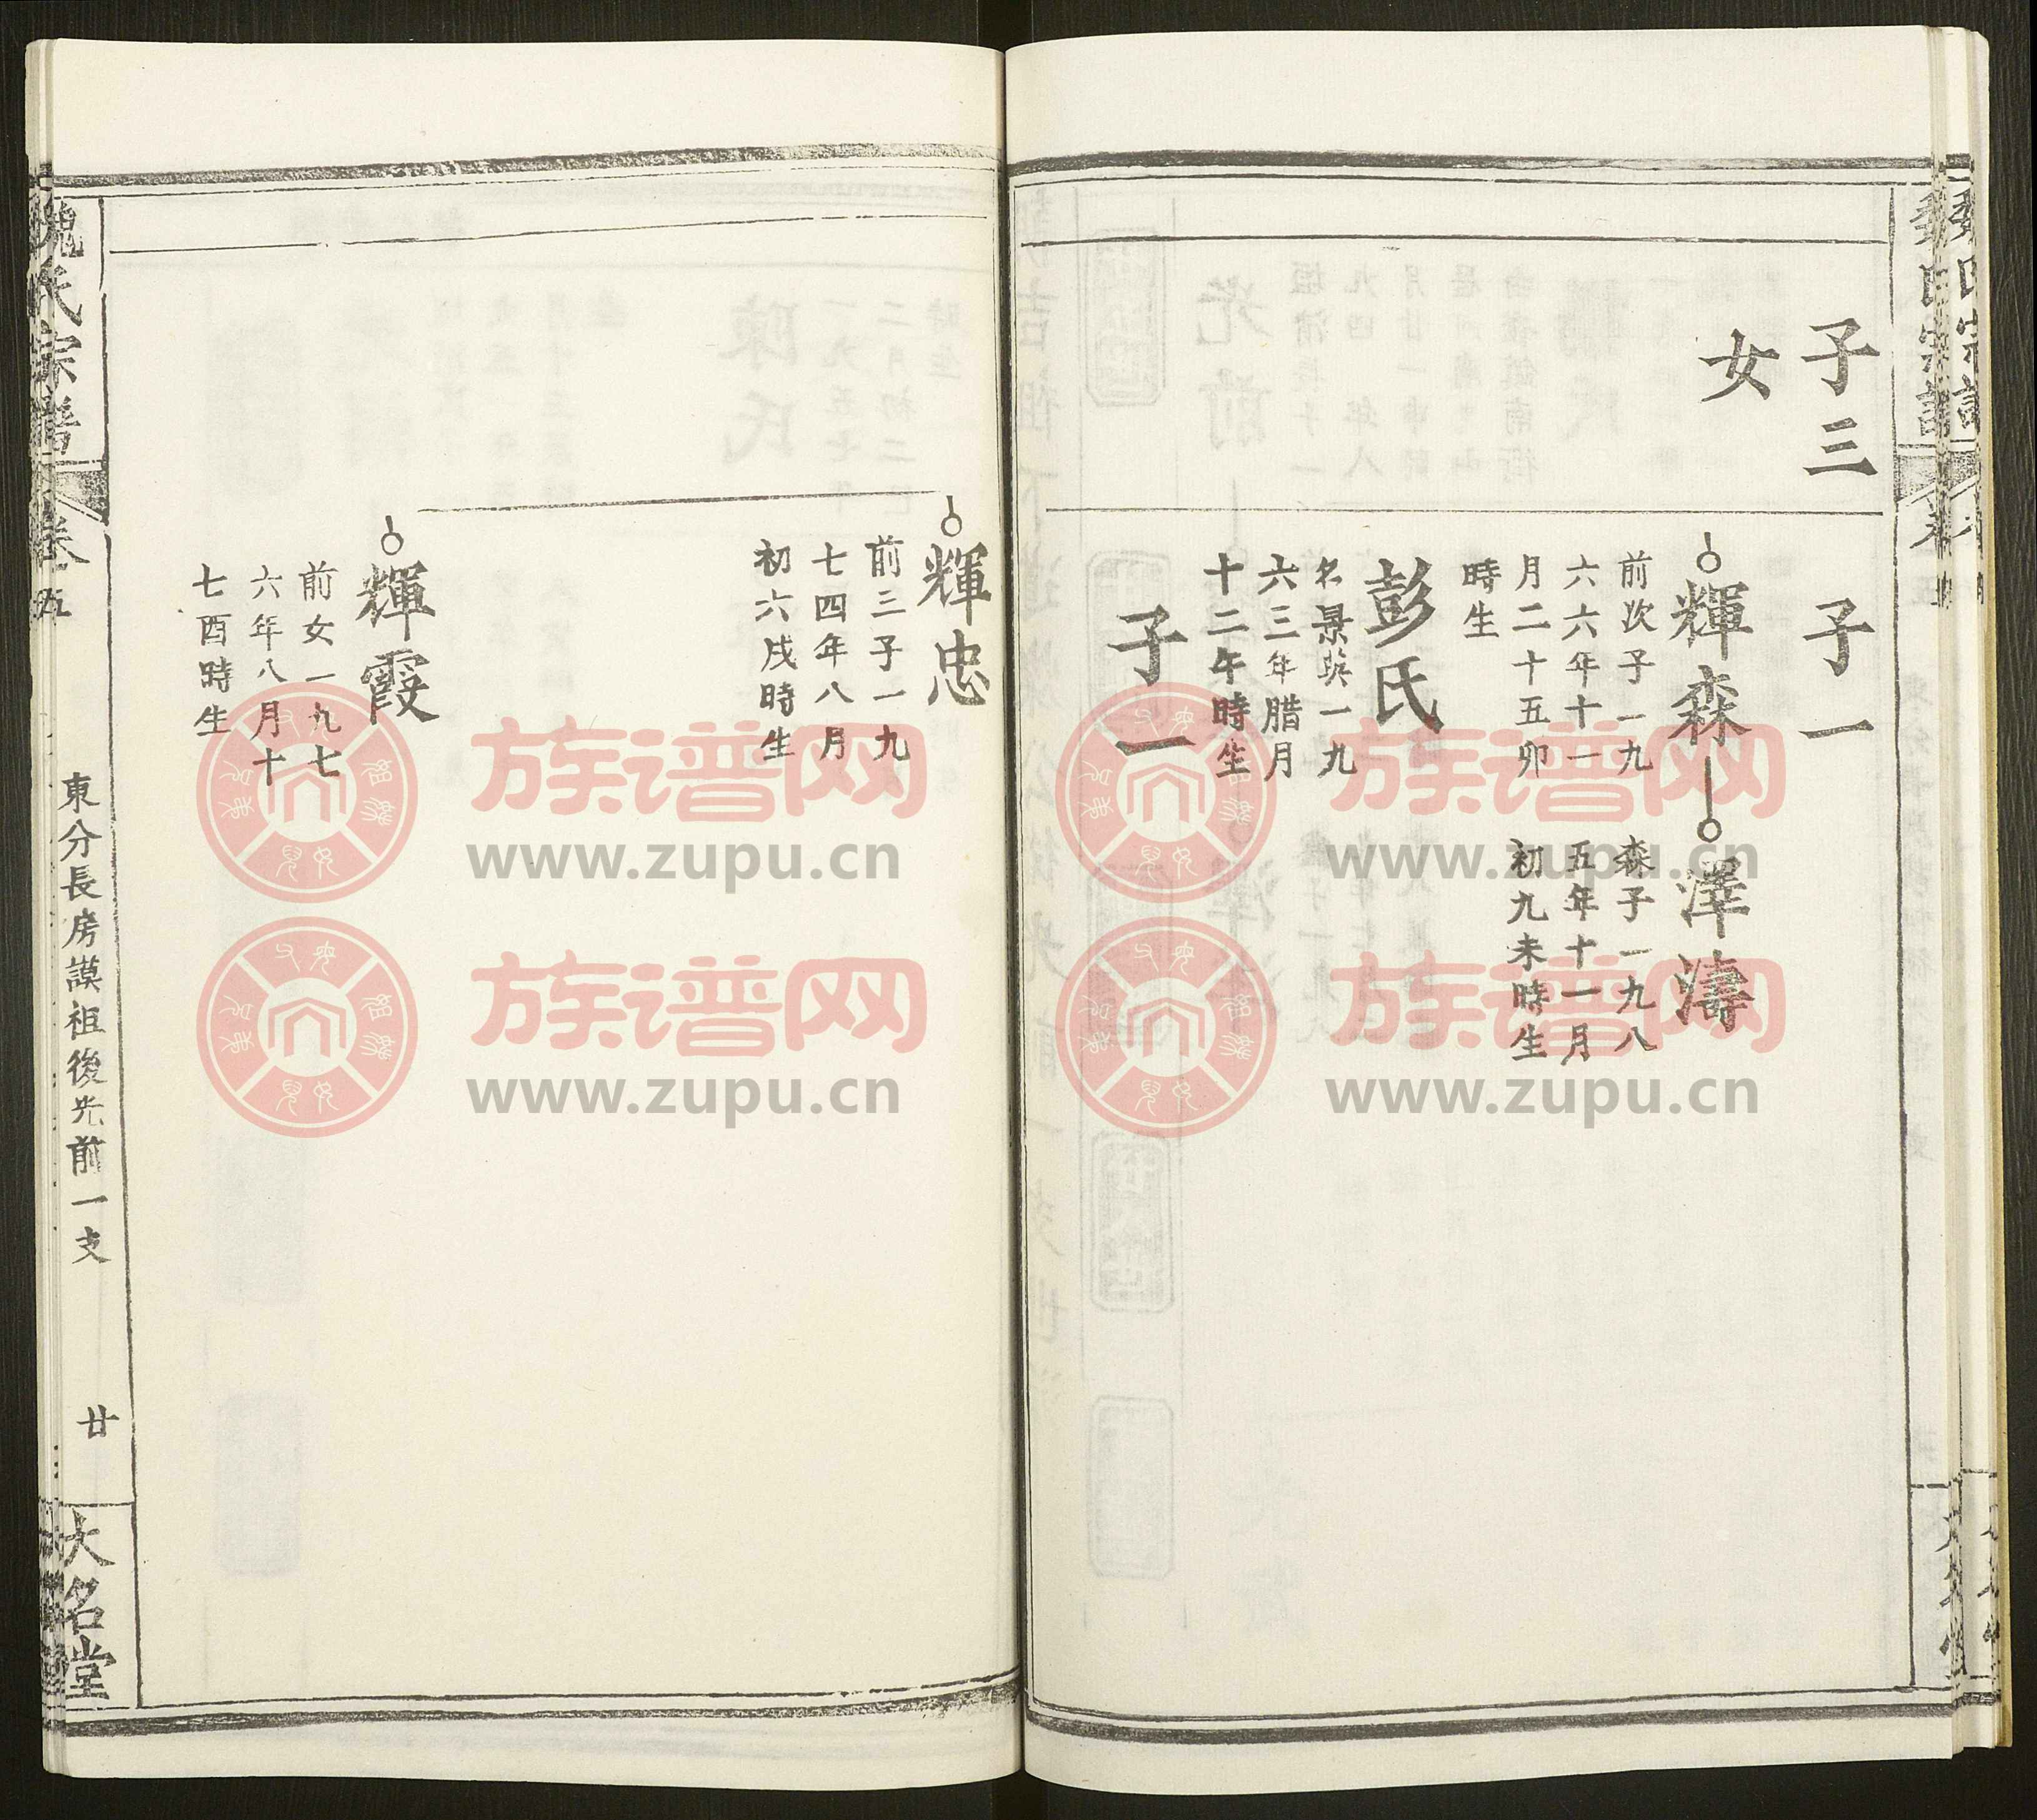 子三
女
子一
輝森
前次子一九
六六年十一
月二十五卯
時生
澤濤
森子一九八
五年十一月
初九未時生
彭氏
名景英一九
六三年腊月
十二午時生
子一
輝忠
前三子一九
七四年八月
初六戌時生
輝霞
前女一九七
六年八月十
七酉時生
魏氏宗譜
卷五
東分長房謨祖後光前一支
廿
大名堂
族谱网
www.zupu.cn
族谱网
www.zupu.cn
族谱网
www.zupu.cn
族谱网
www.zupu.cn